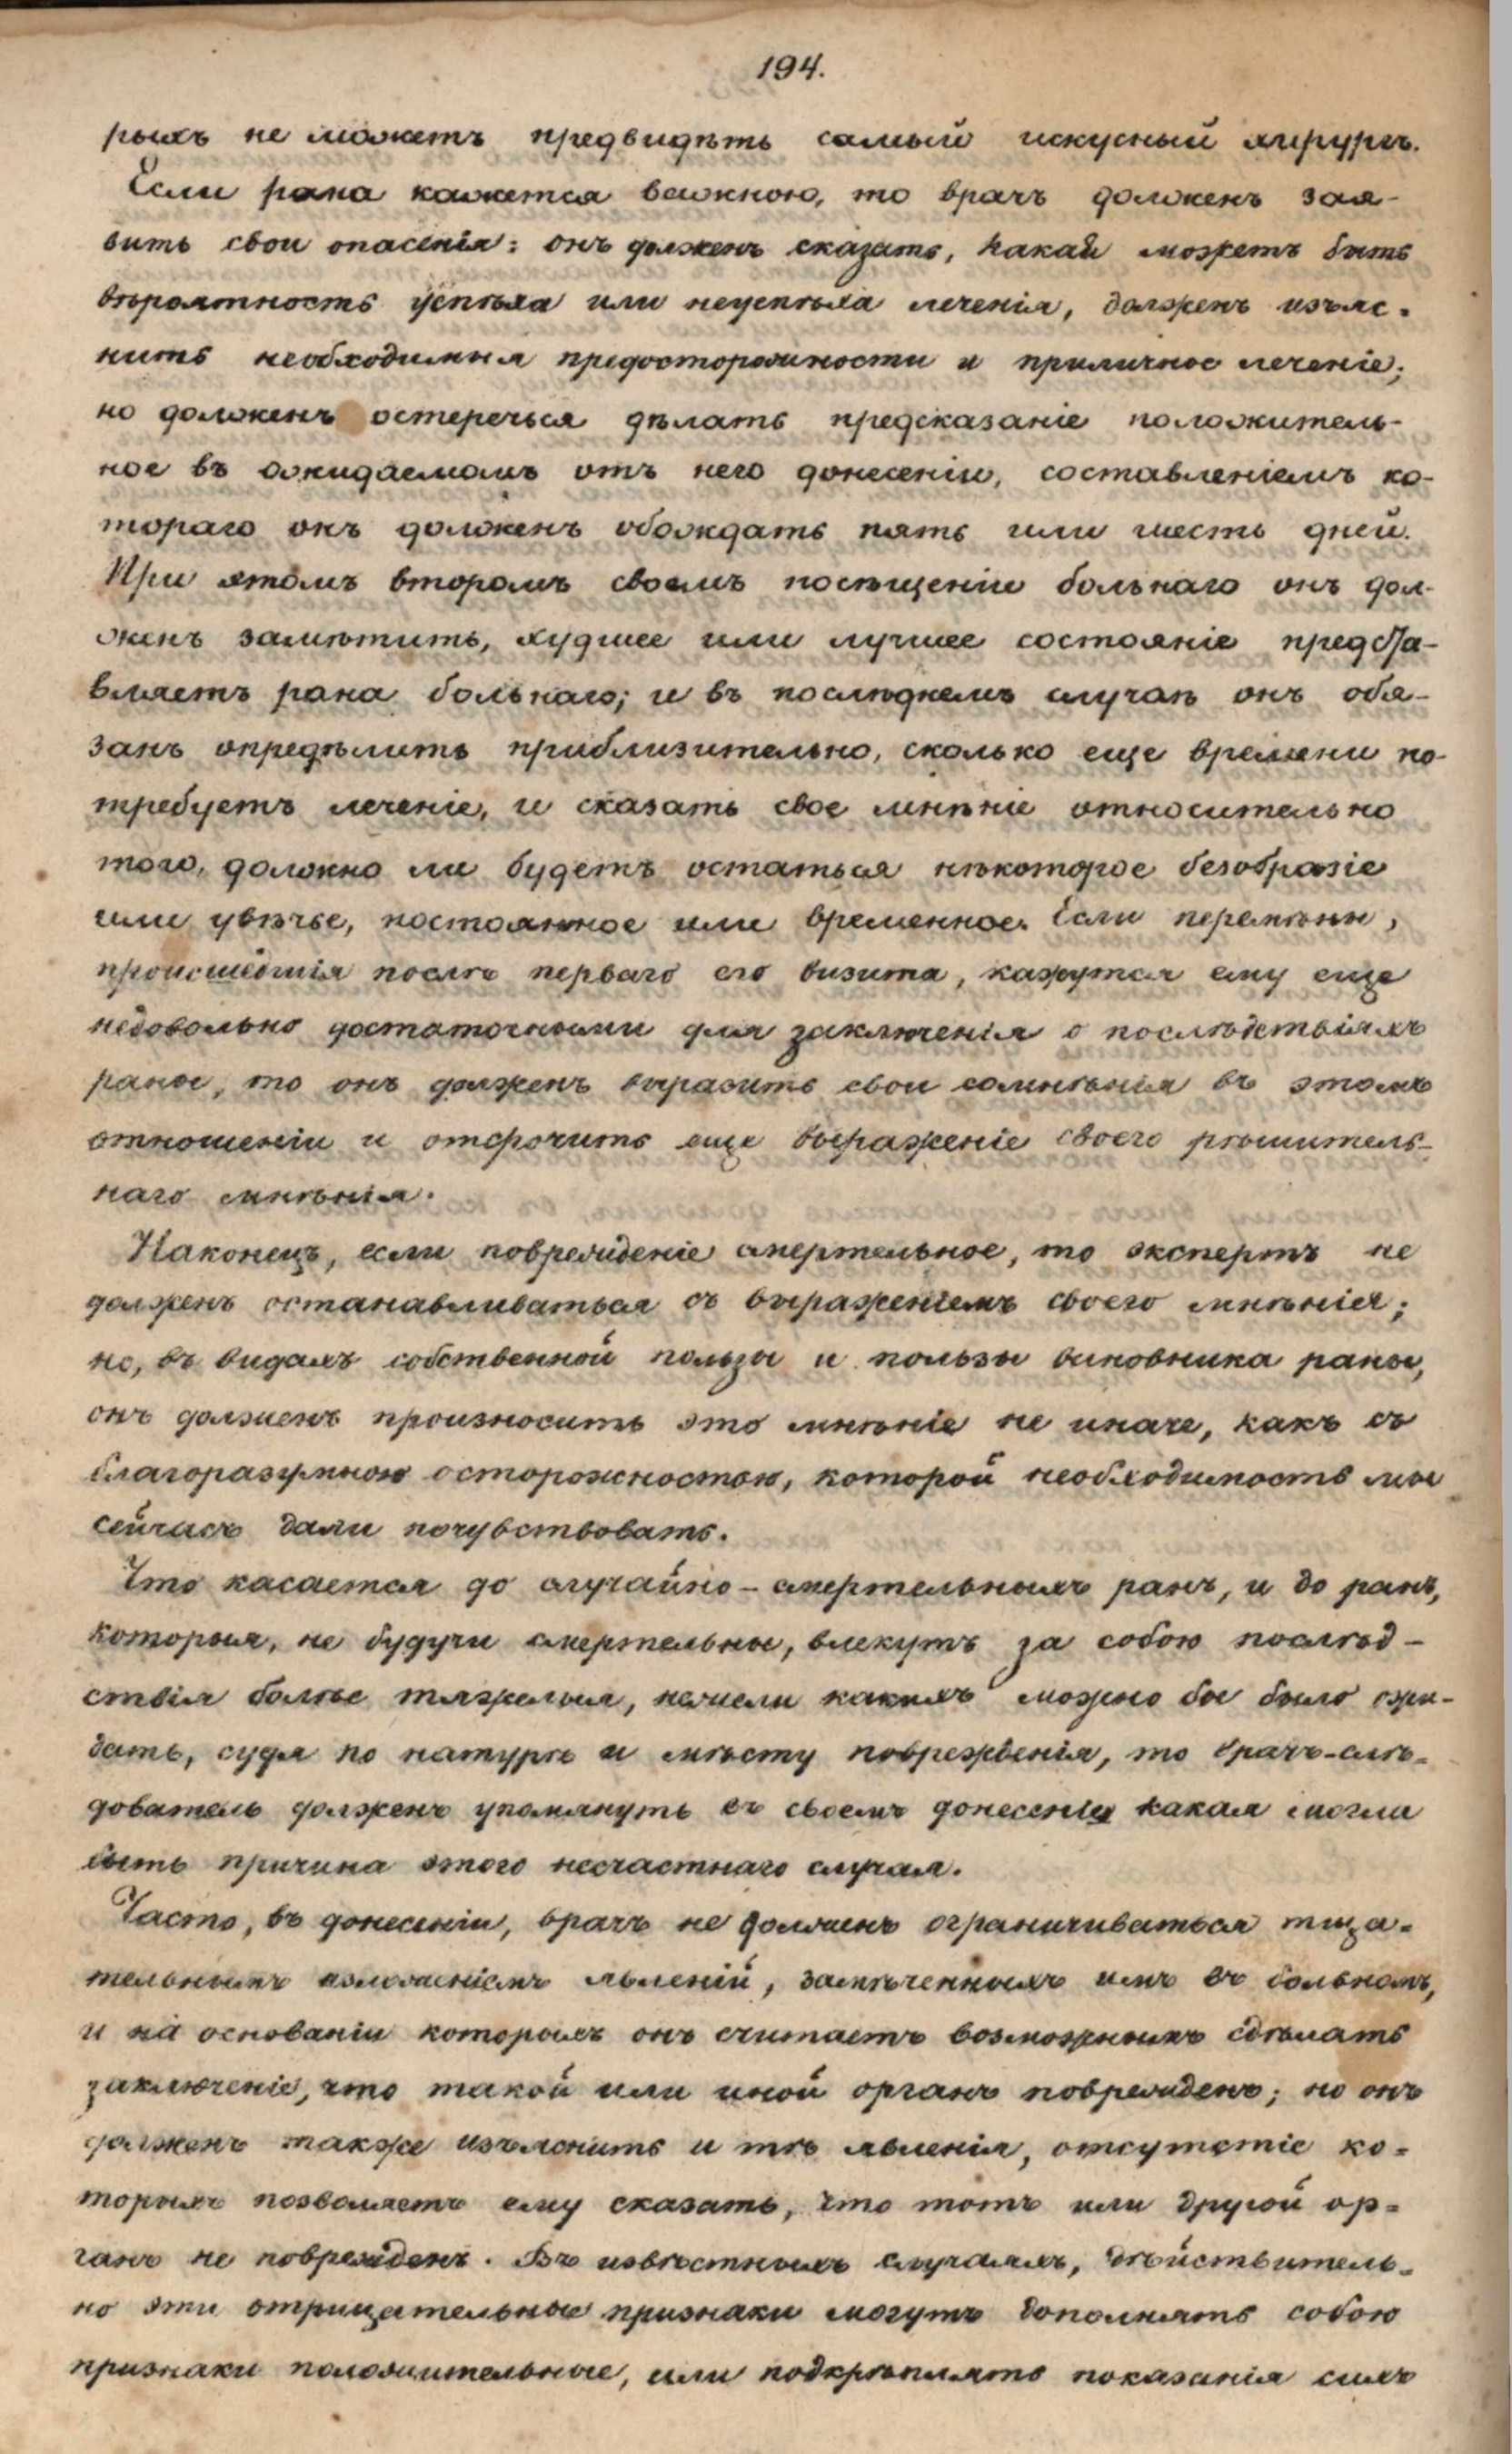 194.
рыхъ не можетъ предвидѣть самый искусный хирургъ.
Если рана кажется важною, то врачъ долженъ зая-
вить свои опасенія: онъ долженъ сказать, какая можетъ быть
вѣроятность успѣха или неуспѣха леченія, долженъ изъяс-
нить необходимыя предосторожности и приличное леченіе;
но долженъ остеречься дѣлать предсказаніе положитель-
ное въ ожидаемомъ отъ него донесеніи, составленіемъ ко-
тораго онъ долженъ обождать пять или шесть дней.
При этомъ второмъ своемъ посѣщеніи больнаго онъ дол-
женъ замѣтить, худшее или лучшее состояніе предста-
вляетъ рана больнаго; и въ послѣднемъ случаѣ онъ обя-
занъ опредѣлить приблизительно, сколько еще времени по-
требуетъ леченіе, и сказать свое мнѣніе относительно
того, должно ли будетъ остаться нѣкоторое безобразіе
или увѣчье, постоянное или временное. Если перемѣны,
происшедшія послѣ перваго его визита, кажутся ему еще
недовольно достаточными для заключенія о послѣдствіяхъ
раны, то онъ долженъ выразить свои сомнѣнія въ этомъ
отношеніи и отсрочить еще выраженіе своего рѣшитель-
наго мнѣнія.
Наконецъ, если поврежденіе смертельное, то экспертъ не
долженъ останавливаться съ выраженіемъ своего мнѣнія;
но, въ видахъ собственной пользы и пользы виновника раны,
онъ долженъ произносить это мнѣніе не иначе, какъ съ
благоразумною осторожностью, которой необходимость мы
сейчасъ дали почувствовать.
Что касается до случайно-смертельныхъ ранъ, и до ранъ,
которыя, не будучи смертельны, влекутъ за собою послѣд-
ствія болѣе тяжелыя, нежели какихъ можно бы было ожи-
дать, судя по натурѣ и мѣсту поврежденія, то врачъ-слѣ-
дователь долженъ упомянуть въ своемъ донесеніи какая могла
быть причина этого несчастнаго случая.
Часто, въ донесеніи, врачъ не долженъ ограничиваться тща-
тельнымъ изложеніемъ явленій, замѣченныхъ имъ въ больномъ,
и на основаніи которыхъ онъ считаетъ возможнымъ сдѣлать
заключеніе, что такой или иной органъ поврежденъ; но онъ
долженъ также изъяснить и тѣ явленія, отсутстіе ко-
торыхъ позволяетъ ему сказать, что тотъ или другой ор-
ганъ не поврежденъ. Въ извѣстныхъ случаяхъ, дѣйствитель-
но эти отрицательные признаки могутъ дополнять собою
признаки положительные, или подкрѣплять показанія сихъ